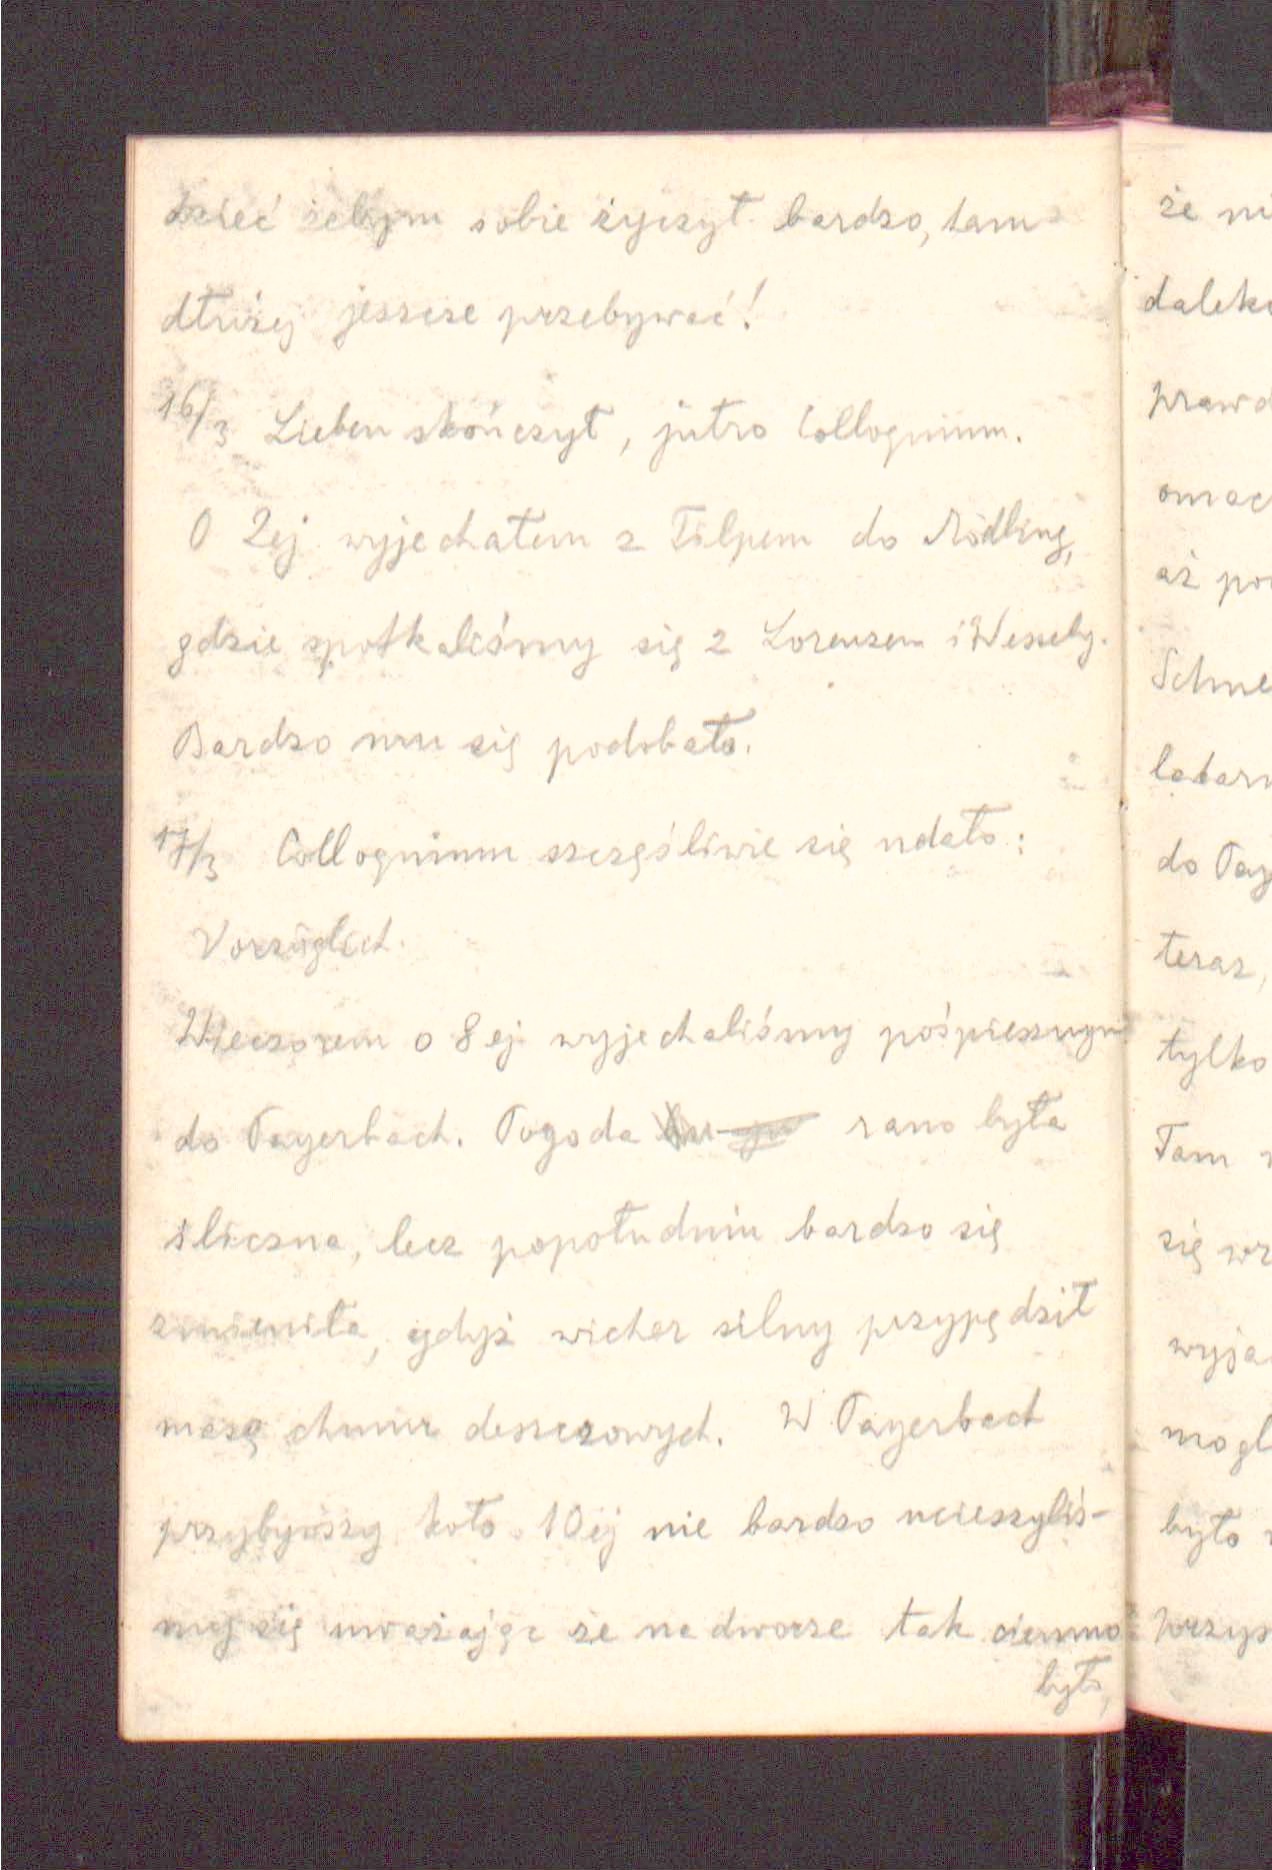 dzieć żebym sobie życzył bardzo, tam
dłużej jeszcze przebywać!
16/3 Lieben skończył, jutro Colloquium.
O 2ej wyjechałem z Tilpem do Mödling,
gdzie spotkaliśmy się z Lorenzem i Wessely.
Bardzo mu się podobało.
17/3 Colloquium szczęśliwie się udało:
Vorzüglich.
Wieczorem o 8ej wyjechaliśmy pośpiesznym
do Payerbach. Pogoda rano była
śliczna, lecz popołudniu bardzo się
zmieniła, gdyż wicher silny przypędził
masę chmur deszczowych. W Payerbach
przybywszy koło 10ej nie bardzo ucieszyliś-
my się uważając że na dworze tak ciemno
było,
że ni
daleko
prawd
omac
aż po
Schne
latarn
do Pay
teraz,
tylko
Tam
się wr
wyja
mogl
było
przys